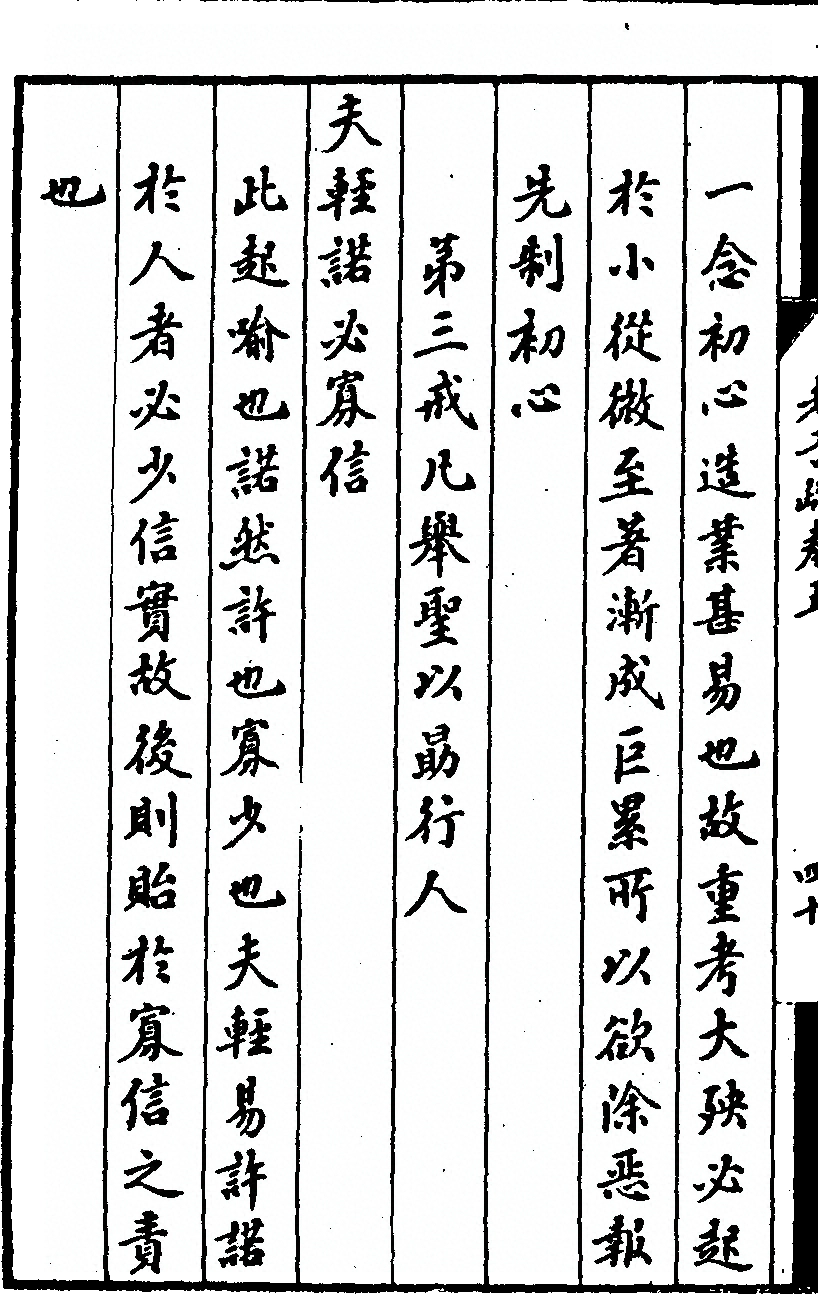 一念初心造業甚易也故重考大殃必起
於小從微至著漸成巨累所以欲除惡報
先制初心
第三戒凡舉聖以勗行人
夫輕諾必寡信
此起喻也諾然許也寡少也夫輕易許諾
於人者必少信實故後則貽於寡信之責
也